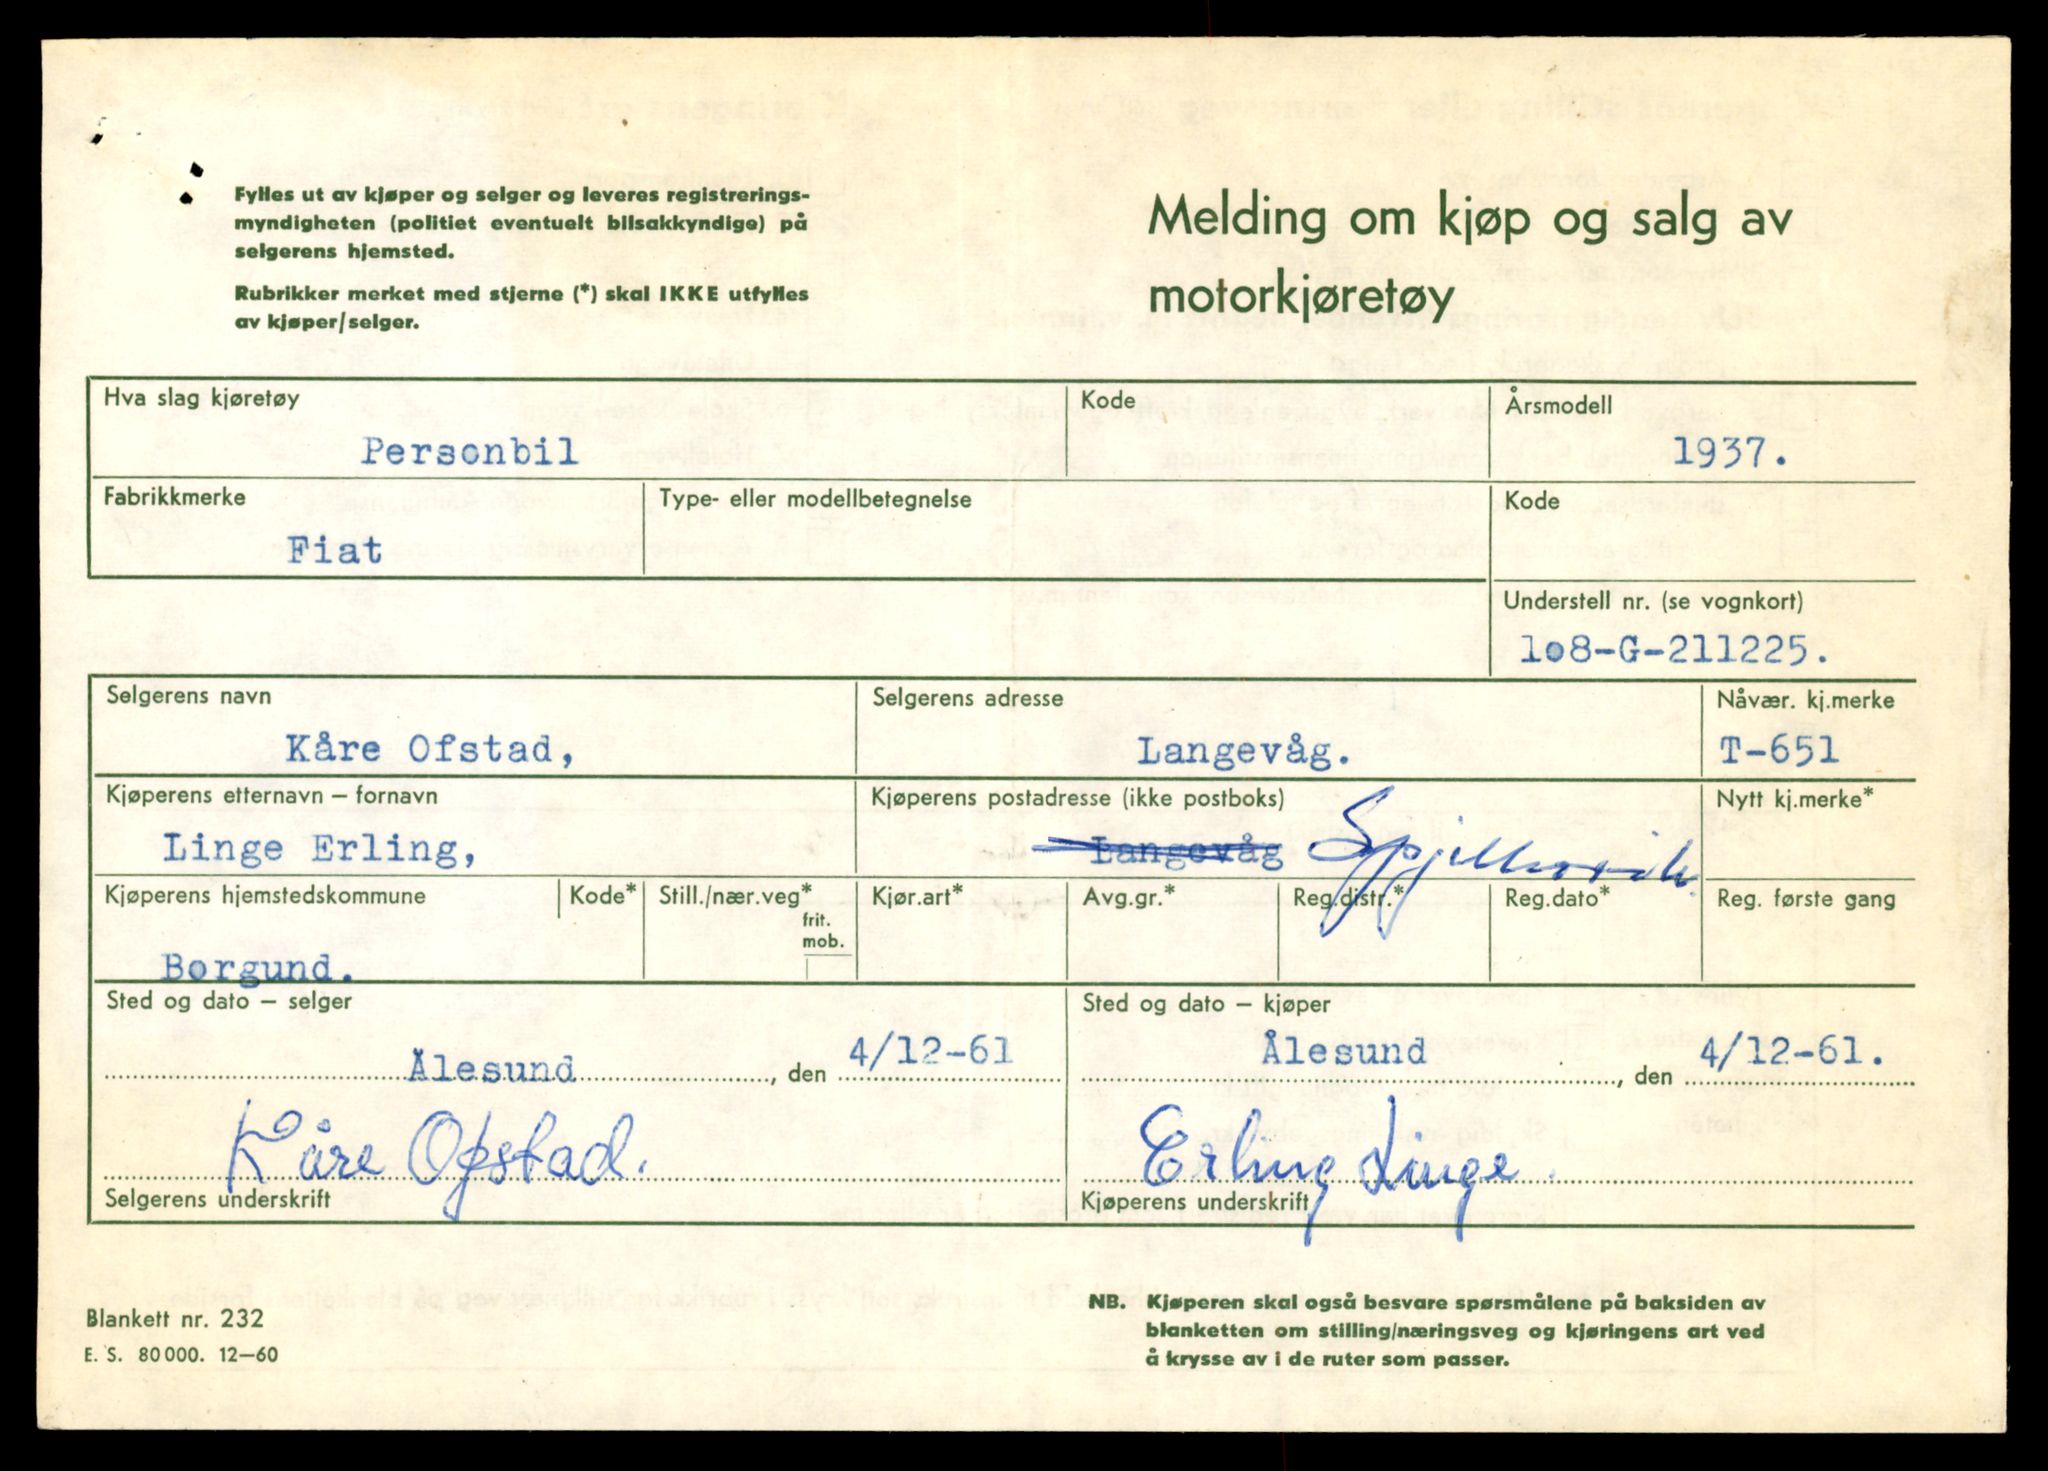 Fylles ut av kjøper og selger og leveres registrerings-
myndigheten (politiet eventuelt bilsakkyndige) på
selgerens hjemsted.
Rubrikker merket med stjerne (*) skal IKKE utfylles
av kjøper/selger.
Melding om kjøp og salg av
motorkjøretøy
Hva slag kjøretøy
Personbil
Kode
Årsmodell
1937.
Fabrikkmerke
Fiat
Type- eller modellbetegnelse
Kode
Understell nr. (se vognkort)
1o8-G-211225.
Selgerens navn
Kåre Ofstad,
Selgerens adresse
Langevåg.
Nåvær. kj.merke
T-651
Kjøperens etternavn – fornavn
Linge Erling,
Kjøperens postadresse (ikke postboks)
Langevåg Spjelkavik.
Nytt kj.merke*
Kjøperens hjemstedskommune
Borgund.
Kode*
Still./nær.veg*
frit.
mob.
Kjør.art*
Avg.gr.*
Reg.distr.*
Reg.dato*
Reg. første gang
Sted og dato – selger
Ålesund, den 4/12-61
Sted og dato – kjøper
Ålesund, den 4/12-61.
Kåre Ofstad.
Selgerens underskrift
Erling Linge.
Kjøperens underskrift
Blankett nr. 232
E. S. 80 000. 12–60
NB. Kjøperen skal også besvare spørsmålene på baksiden av
blanketten om stilling/næringsveg og kjøringens art ved
å krysse av i de ruter som passer.